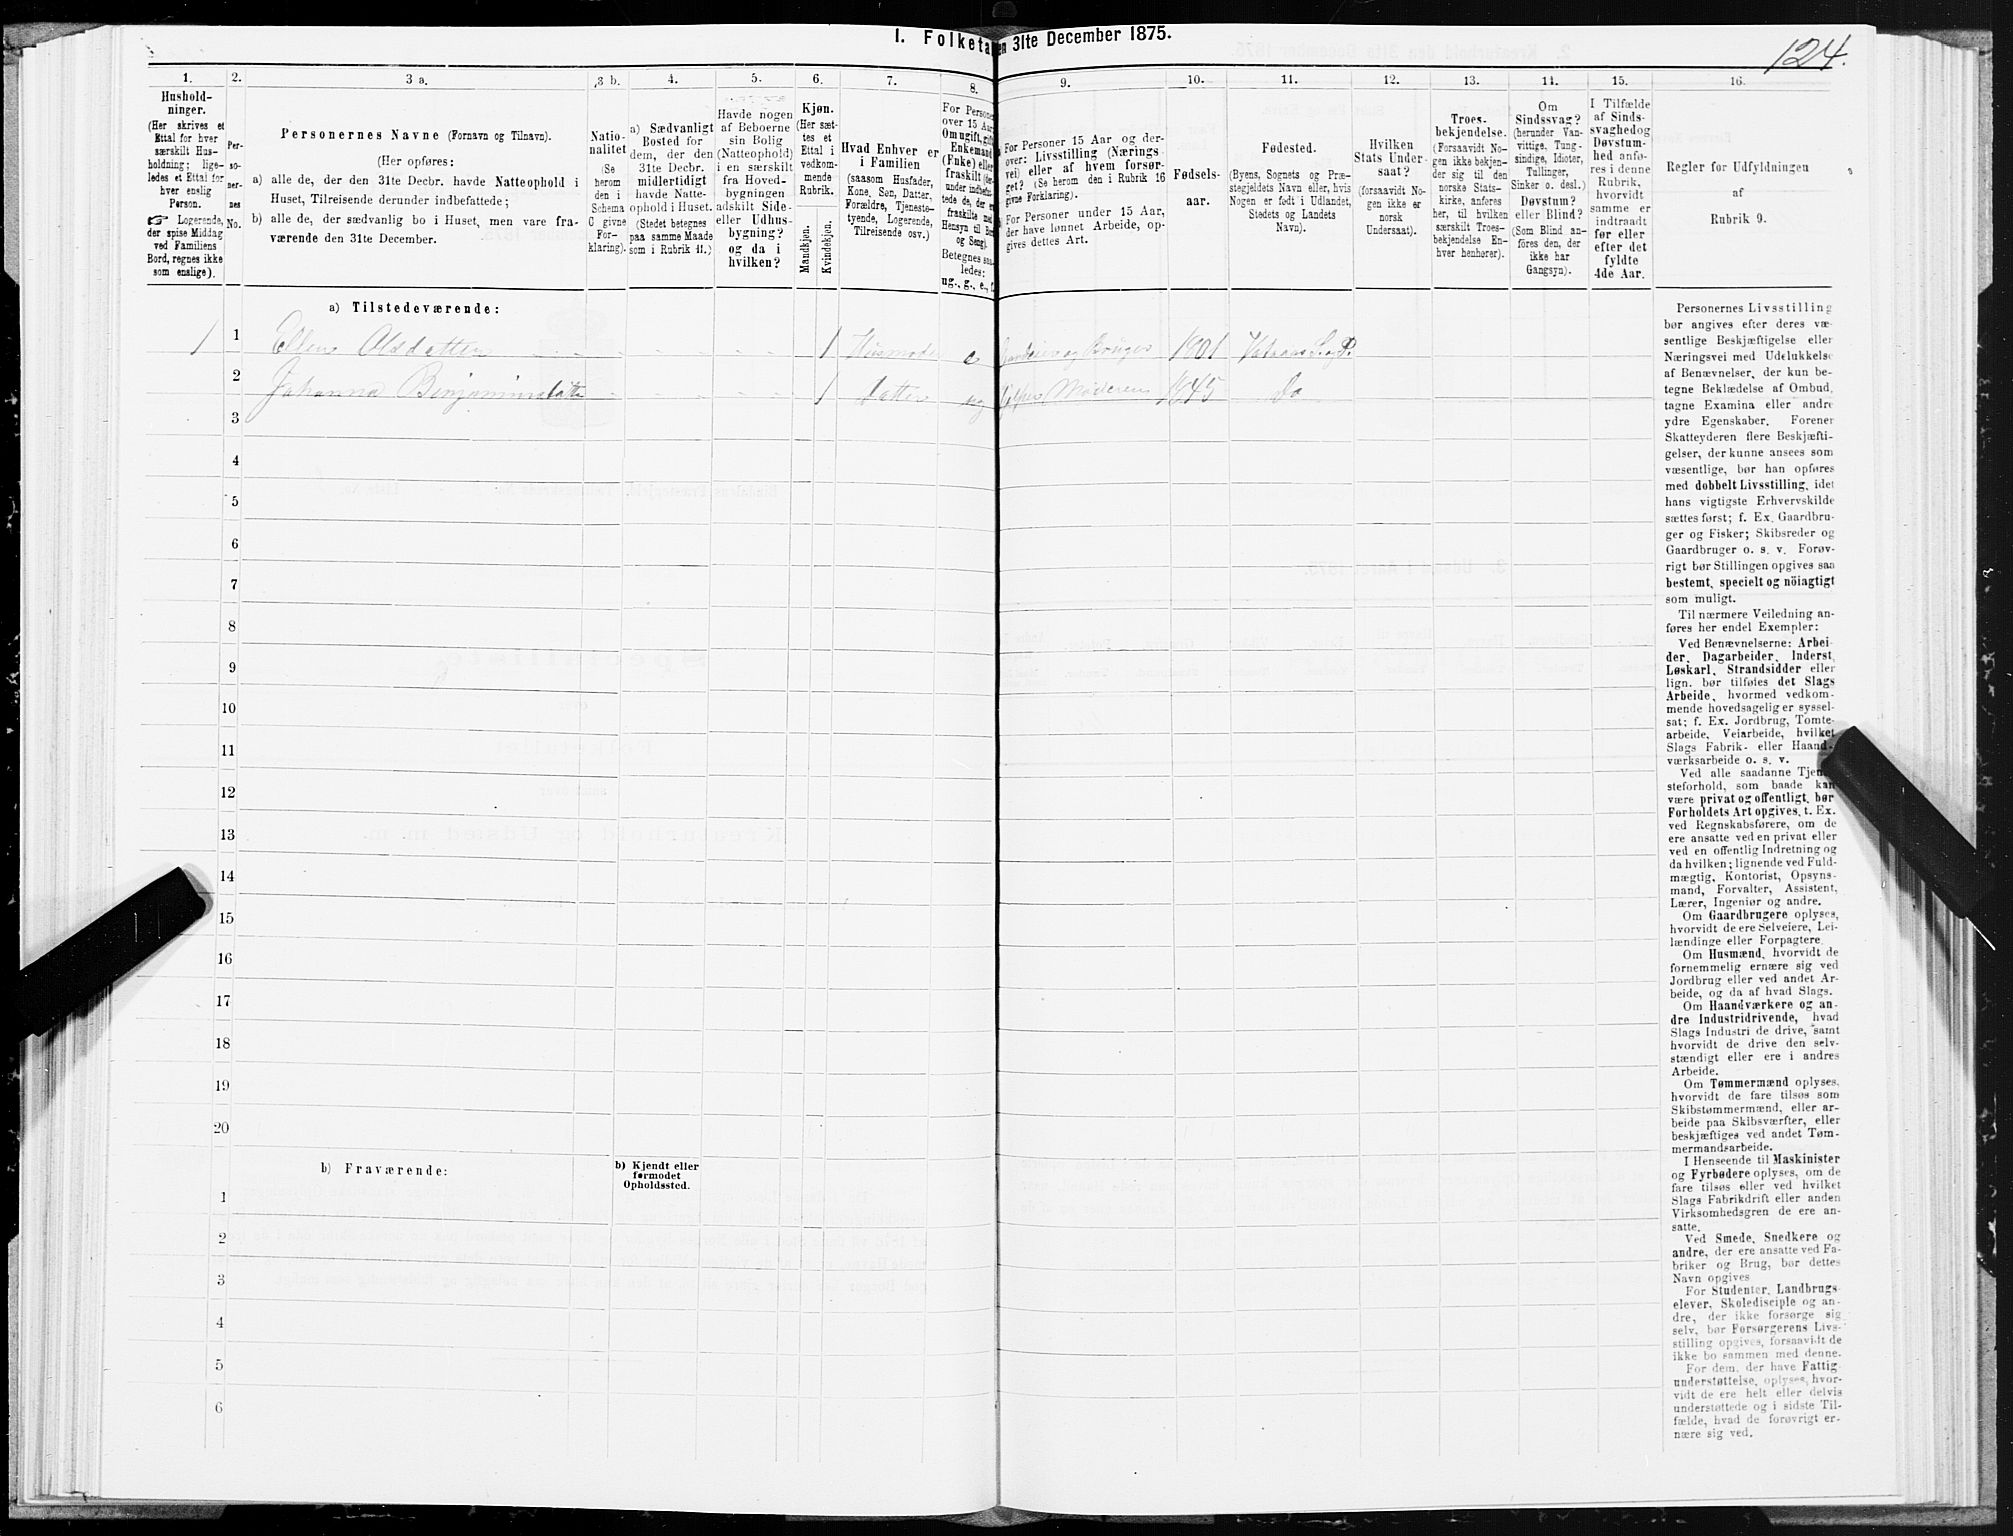 I. Folketa
en 31te December 1875.
124.
1.
2.
3 a.
3 b.
4.
5.
6.
7.
8.
9.
10.
11.
12.
13.
14.
15.
16.
Hushold-
ninger.
(Her skrives et
Ettal for hver
særskilt Hus-
holdning; lige-
ledes et Ettal for
hver enslig
Person.
☞ Logerende,
der spise Middag
ved Familiens
Bord, regnes ikke
som enslige).
Per-
so-
ner-
nes
No.
Personernes Navne (Fornavn og Tilnavn).
(Her opføres:
a) alle de, der den 31te Decbr. havde Natteophold i
Huset, Tilreisende derunder indbefattede;
b) alle de, der sædvanlig bo i Huset, men vare fra-
værende den 31te December.
Natio-
nalitet
(Se
herom
den i
Schema
G givne
For-
klaring).
a) Sædvanligt
Bosted for
dem, der den
31te Decbr.
midlertidigt
havde Natte-
ophold i Huset.
(Stedet betegnes
paa samme Maade
som i Rubrik 11.)
Havde nogen
af Beboerne
sin Bolig
(Natteophold)
i en særskilt
fra Hoved-
bygningen
adskilt Side-
eller Udhus-
bygning?
og da i
hvilken?
Kjøn.
(Her sæt-
tes et
Ettal i
vedkom-
mende
Rubrik.
Mandkjøn.
Kvindekjøn.
Hvad Enhver er
i Familien
(saasom Husfader,
Kone, Søn, Datter,
Forældre, Tjeneste-
tyende, Logerende,
Tilreisende osv.)
For Persone
over 15 Aar
Om ugift, gift
Enkemand
(Enke) eller
fraskilt
og Seng).
Betegnes saa-
ledes:
ug., g., e., f.
For Personer 15 Aar og der-
over: Livsstilling (Nærings-
vei) eller af hvem forsør-
get? (Se herom den i Rubrik 16
givne Forklaring).
For Personer under 15 Aar,
der have lønnet Arbeide, op-
gives dettes Art.
Fødsels-
aar.
Fødested.
(Byens, Sognets og Præ-
stegjeldets Navn eller, hvis
Nogen er født i Udlandet,
Stedets og Landets
Navn).
Hvilken
Stats Under-
saat?
(forsaavidt No-
gen ikke er
norsk
Undersaat).
Troes-
bekjendelse.
(Forsaavidt No-
gen ikke bekjen-
der sig til den
norske Stats-
kirke, anføres
her, til hvilken
særskilt Troes-
bekjendelse En-
hver henhører).
Om
Sindssvag?
(herunder Van-
vittige, Tung-
sindige, Idioter,
Tullinger,
Sinker o. desl.)
Døvstum?
eller Blind?
(Som Blind an-
føres den, der
ikke har
Gangsyn).
I Tilfælde
af Sinds-
svaghed og
Døvstum-
hed anfø-
res i denne
Rubrik,
hvorvidt
samme er
indtraadt
før eller
efter det
fyldte
4de Aar.
Regler for Udfyldningen
af
Rubrik 9.
a) Tilstedeværende:
1 1 Ellen Olsdatter 1 Husmoder e Gaardeier og Bruger 1801 S. og P.
2 Johanna Benjaminsdatter 1 datter ug hjelper Moderen 1845 Do
3
4
5
6
7
8
9
10
11
12
13
14
15
16
17
18
19
20
b) Fraværende:
b) Kjendt eller
formodet
Opholdssted.
1
2
3
4
5
6
Personernes Livsstilling
bør angives efter deres væ-
sentlige Beskjæftigelse eller
Næringsvei med Udelukkelse
af Benævnelser, der kun be-
tegne Beklædelse af Ombud,
tagne Examina eller andre
ydre Egenskaber. Forener
Skatteyderen flere Beskjæfti-
gelser, der kunne ansees som
væsentlige, bør han opføres
med dobbelt Livsstilling, idet
hans vigtigste Erhvervskilde
sættes først; f. Ex. Gaardbru-
ger og Fisker; Skibsreder og
Gaardbruger o. s. v. Forøv-
rigt bør Stillingen opgives saa
bestemt, specielt og nöiagtigt
som muligt.
Til nærmere Veiledning an-
føres her endel Exempler:
Ved Benævnelserne: Arbei-
der, Dagarbeider, Inderst,
Løskarl, Strandsidder eller
lign. bør tilføies det Slags
Arbeide, hvormed vedkom-
mende hovedsagelig er syssel-
sat; f. Ex. Jordbrug, Tomte-
arbeide, Veiarbeide, hvilket
Slags Fabrik- eller Haand-
værksarbeide o. s. v.
Ved alle saadanne Tjene-
steforhold, som baade kan
være privat og offentligt, bør
Forholdets Art opgives, t. Ex.
ved Regnskabsførere, om de
ere ansatte ved en privat eller
ved en offentlig Indretning og
da hvilken; lignende ved Fuld-
mægtig, Kontorist, Opsyns-
mand, Forvalter, Assistent,
Lærer, Ingeniør og andre.
Om Gaardbrugere oplyses,
hvorvidt de ere Selveiere, Lei-
lændinge eller Forpagtere.
Om Husmænd, hvorvidt de
fornemmelig ernære sig ved
Jordbrug eller ved andet Ar-
beide, og da af hvad Slags.
Om Haandværkere og an-
dre Industridrivende, hvad
Slags Industri de drive, samt
hvorvidt de drive den selv-
stændigt eller ere i andres
Arbeide.
Om Tømmermænd oplyses,
hvorvidt de fare tilsøs som
Skibstømmermænd, eller ar-
beide paa Skibsværfter, eller
beskjæftiges ved andet Tøm-
mermandsarbeide.
I Henseende til Maskinister
og Fyrbødere oplyses, om de
fare tilsøs eller ved hvilket
Slags Fabrikdrift eller anden
Virksomhedsgren de ere an-
satte.
Ved Smede, Snedkere og
andre, der ere ansatte ved Fa-
briker og Brug, bør dettes
Navn opgives
For Studenter, Landbrugs-
elever, Skoledisciple og an-
dre, der ikke forsørge sig
selv, bør Forsørgerens Livs-
stilling opgives, forsaavidt de
ikke bo sammen med denne.
For dem, der have Fattig-
understøttelse, oplyses, hvor-
vidt de ere helt eller delvis
understøttede og i sidste Til-
fælde, hvad de forøvrigt er-
nære sig ved.